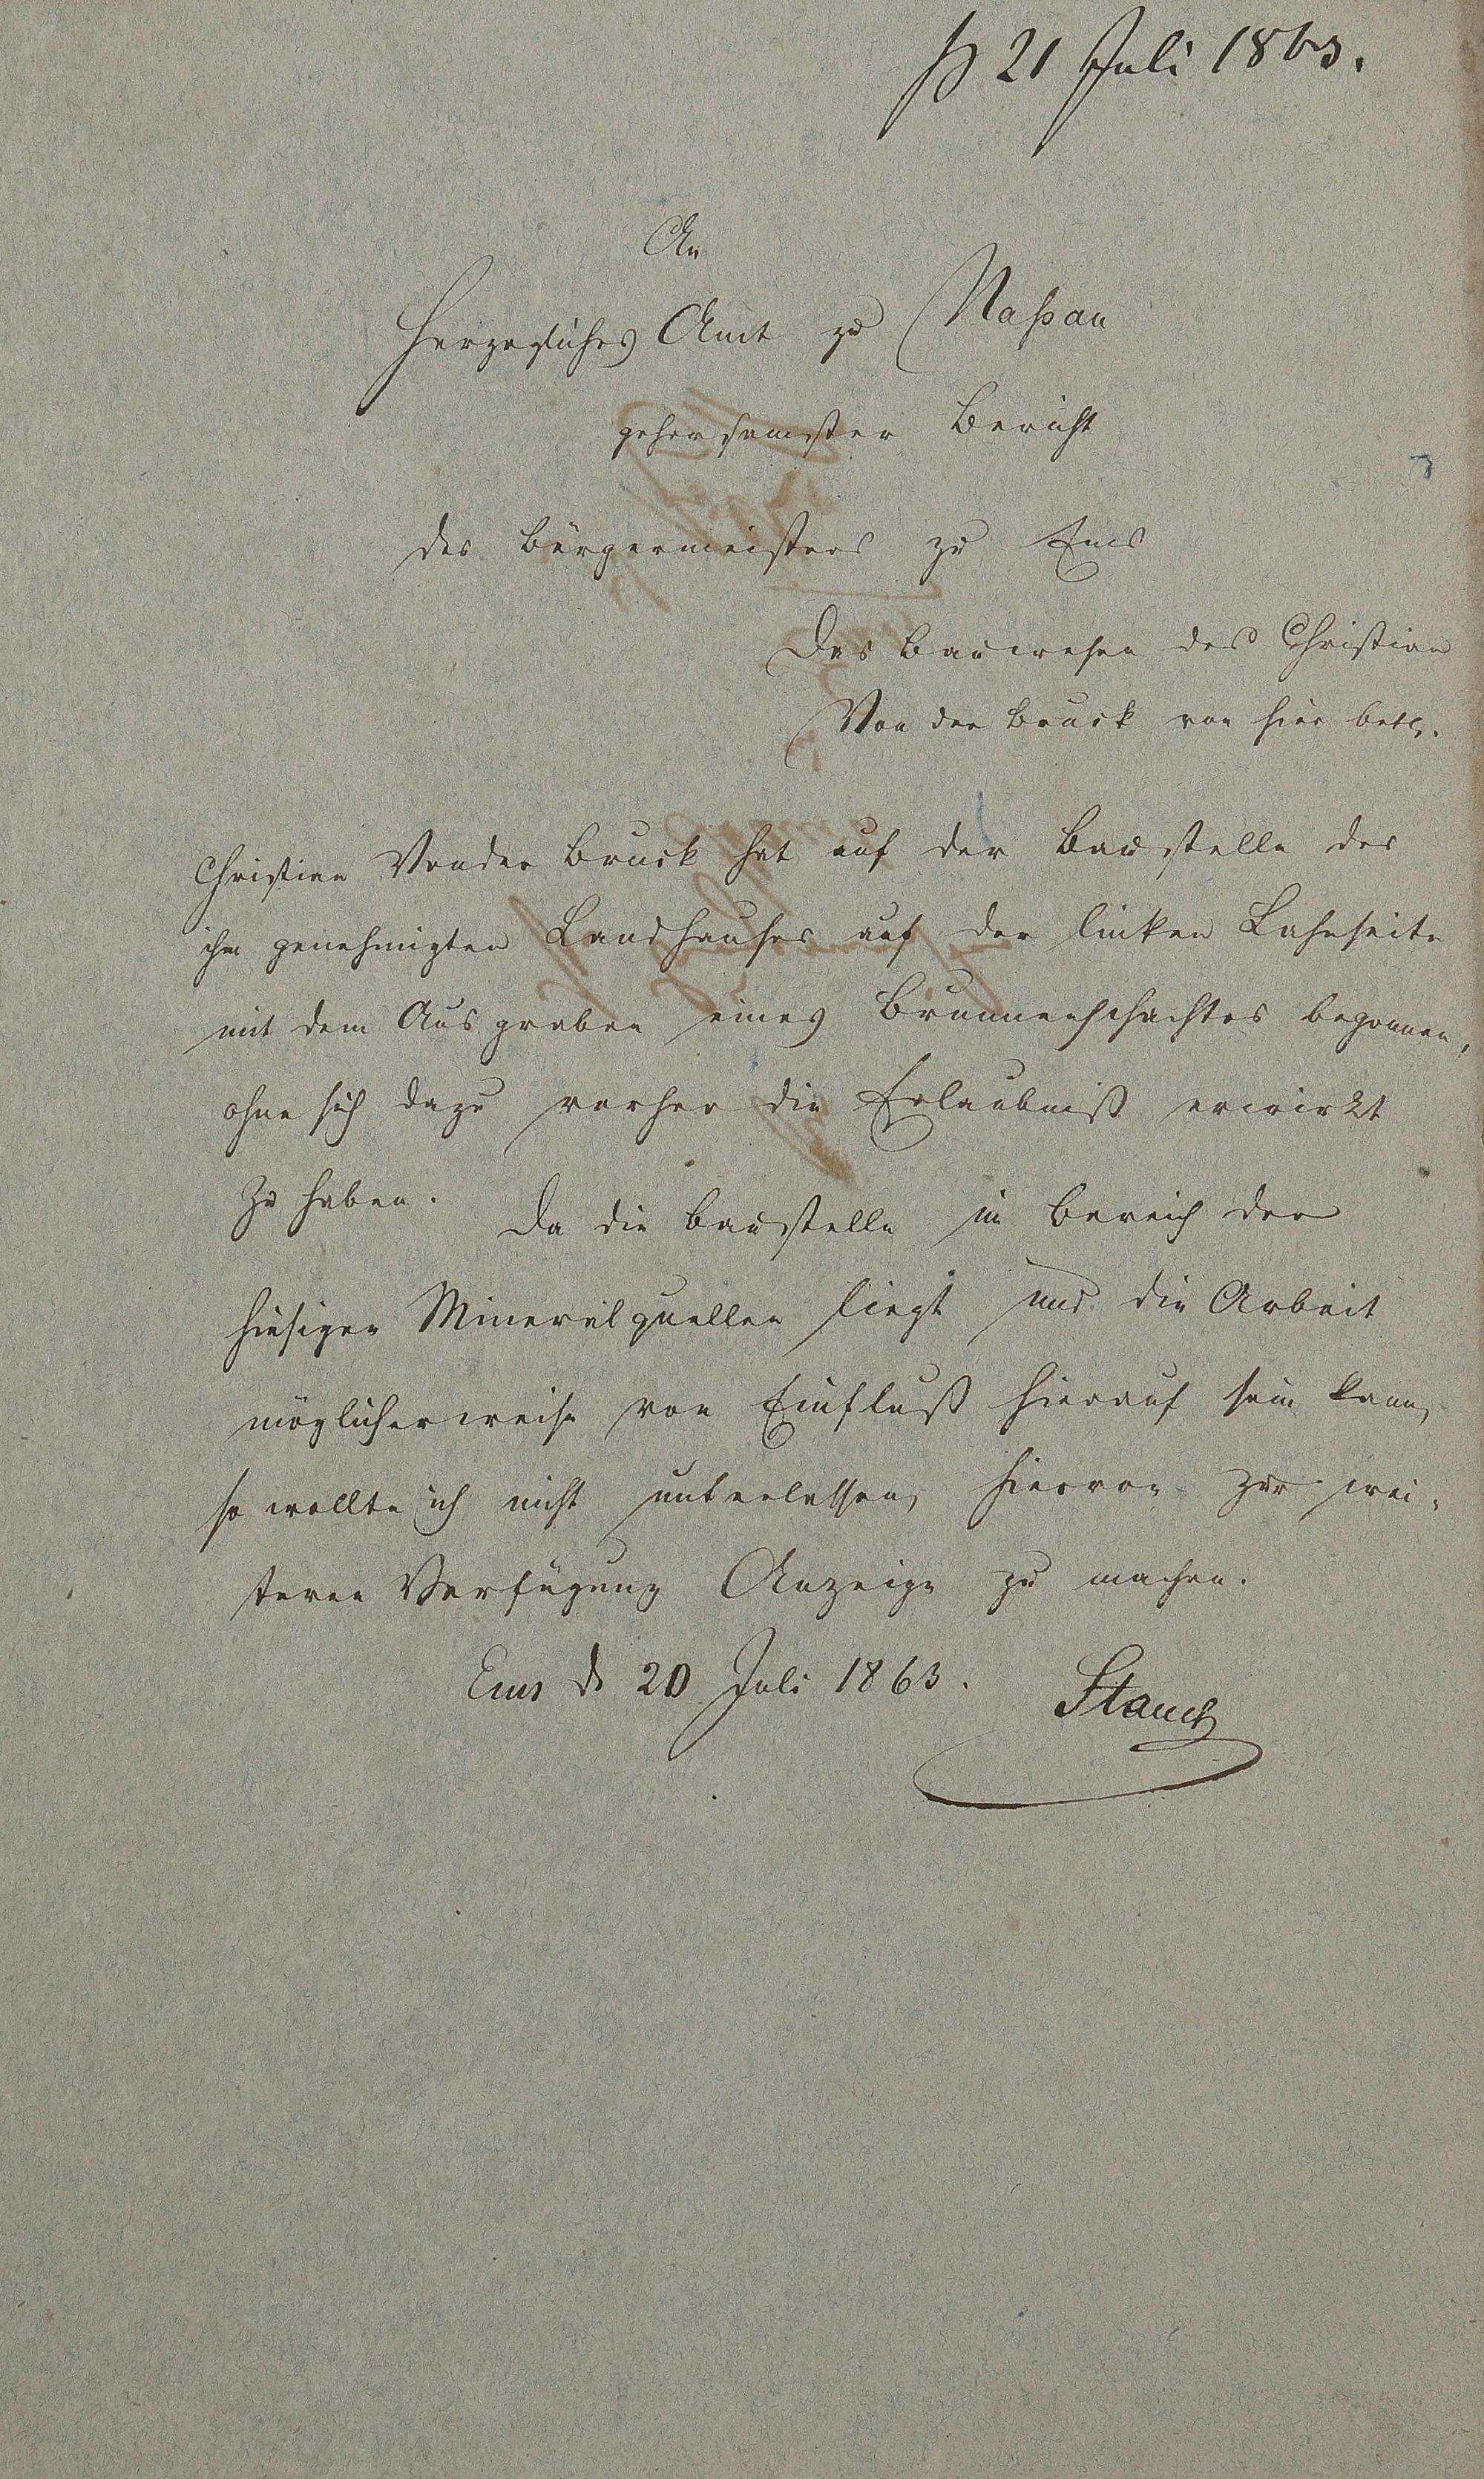 21 Juli 1863.
An
Herzogliches Amt zu Naßau
gehorsamster Bericht
des Bürgermeisters zu Ems
Das Bauwesen des Christian
Von der Bruck von hier betr.
Christian Vonder Bruck hat auf der Baustelle des
ihm genehmigten Landhauses auf der linken Lahnseite
mit dem Ausgraben eines Brunnenschachtes begonnen,
ohne sich dazu vorher die Erlaubniß erwirkt
zu haben. Da die Baustelle im Bereich der
hiesigen Mineralquellen liegt und die Arbeit
möglicherweise von Einfluß hierauf sein kann,
so wollte ich nicht unterlassen, hiervon zur wei-
teren Verfügung Anzeige zu machen.
Ems d 20 Juli 1863.
Stauch